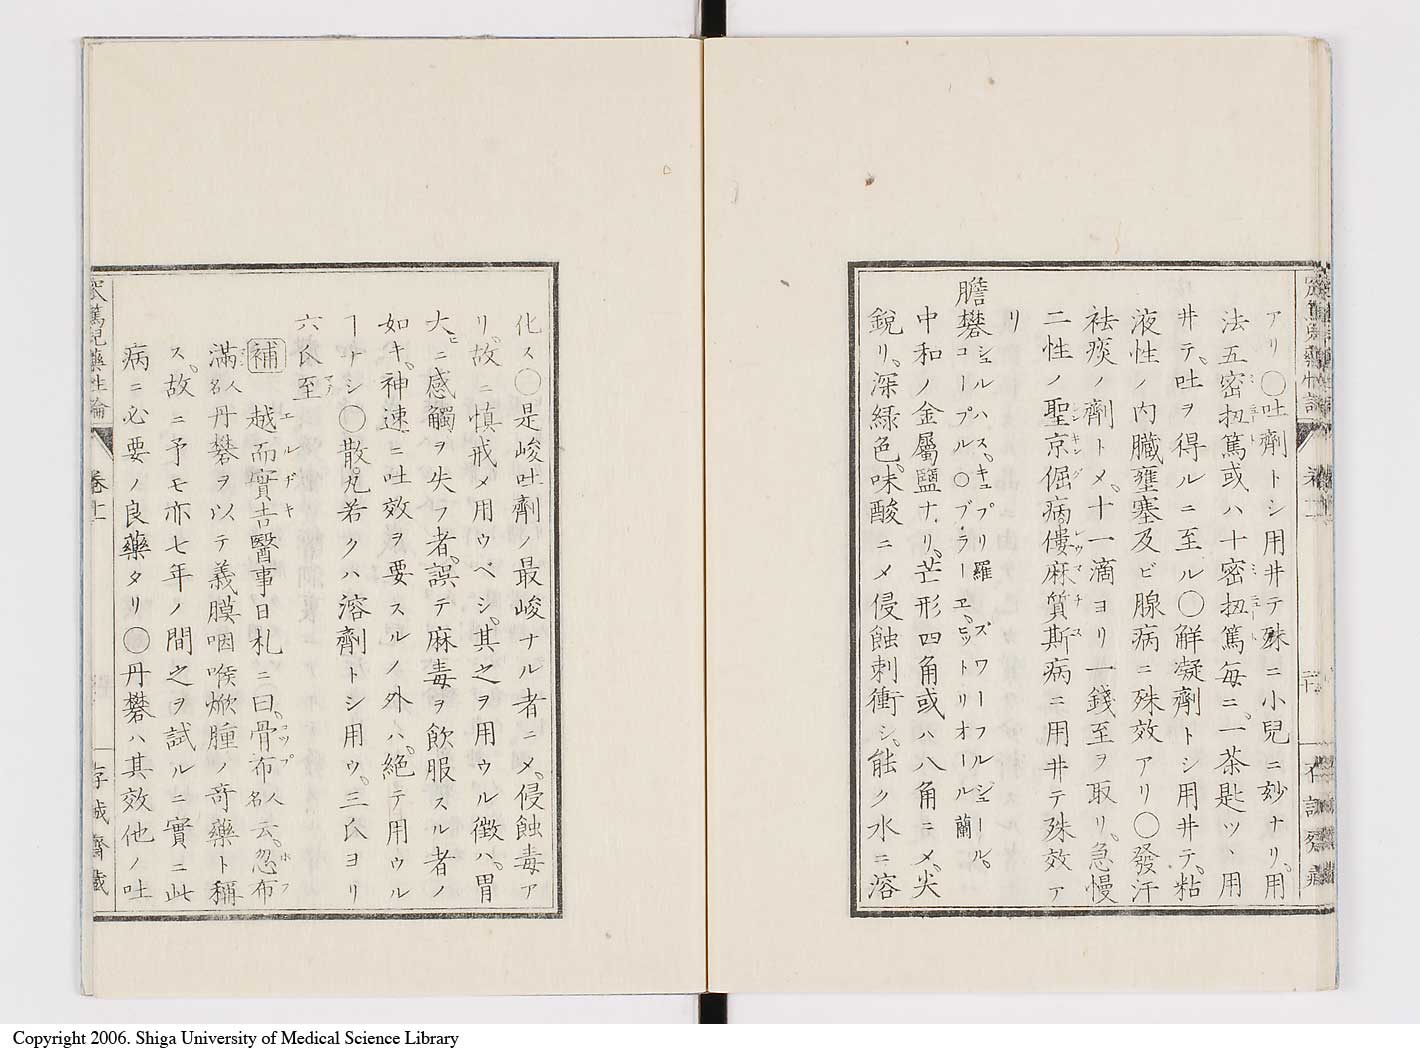 アリ〇吐劑トシ用井テ殊ニ小兒ニ妙ナリ。用
法五密扭篤或ハ十密扭篤每ニ、一茶匙ツヽ用
井テ、吐ヲ得ルニ至ル〇解凝劑トシ用井テ、粘
液性ノ内臓壅塞及ビ腺病ニ殊效アリ〇發汗
袪痰ノ劑トメ、十一滴ヨリ一錢至ヲ取リ。急慢
二性ノ聖京倔病、僂麻質斯病ニ用井テ殊效ア
リ
膽礬 シュルハス、キュプリ 羅 ズワーフルジュール、
コープル〇ブラーエ、ヒットリオール 蘭
中和ノ金屬鹽ナリ。芒形四角或ハ八角ニメ、尖
銳リ。深緑色、味酸ニメ侵蝕刺衝シ、能ク水ニ溶
化ス〇是峻吐劑ノ最峻ナル者ニメ、侵蝕毒ア
リ。故ニ愼戒メ用ウベシ。其之ヲ用ウル徵ハ、胃
大ヒニ感觸ヲ失フ者、誤テ麻毒ヲ飮服スル者ノ
如キ、神速ニ吐效ヲ要スルノ外ハ、絶テ用ウル
ヿナシ〇散、丸若クハ溶劑トシ用ウ。三氏ヨリ
六氏至
補 越而實吉醫事日札ニ曰。骨布人名云。忽布
滿人名丹礬ヲ以テ義膜咽喉焮腫ノ奇藥ト稱
ス。故ニ予モ亦七年ノ間之ヲ試ルニ實ニ此
病ニ必要ノ良藥タリ〇丹礬ハ其效他ノ吐
篤兒藥性論 卷十一 存誠齋藏
Copyright 2006. Shiga University of Medical Science Library